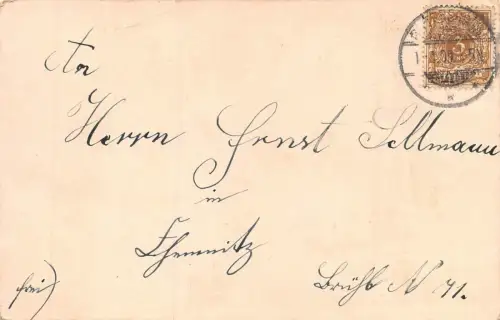 An
Herrn Ernst Sellmann
in
Chemnitz
frei)
Brühl N 41.